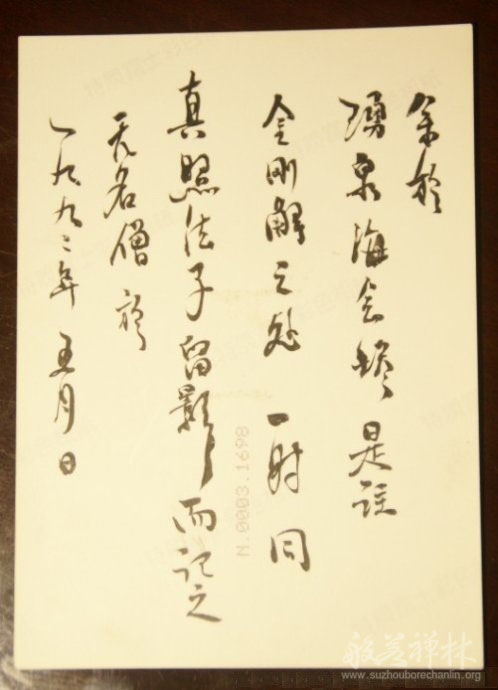 余於
涌泉海会塔是註
金刚解之处一时同
真照法子留影而记之
无名僧
一九九二年五月日
N.0003.1698
般若禅林
www.suzhouborechanlin.org